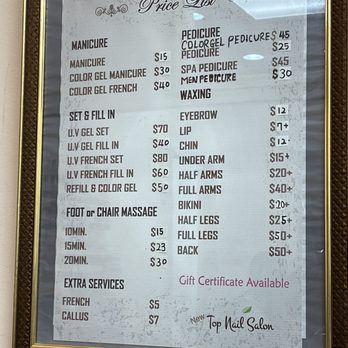 Price List
MANICURE
MANICURE $15
COLOR GEL MANICURE $30
COLOR GEL FRENCH $40
SET & FILL IN
U.V GEL SET $70
U.V GEL FILL IN $40
U.V FRENCH SET $80
U.V FRENCH FILL IN $60
REFILL & COLOR GEL $50
FOOT or CHAIR MASSAGE
10MIN. $15
15MIN. $23
20MIN. $30
EXTRA SERVICES
FRENCH $5
CALLUS $7
PEDICURE
COLORGEL PEDICURE $45
PEDICURE $25
SPA PEDICURE $45
MEN PEDICURE $30
WAXING
EYEBROW $12
LIP $7+
CHIN $12
UNDER ARM $15+
HALF ARMS $20+
FULL ARMS $40+
BIKINI $20+
HALF LEGS $25+
FULL LEGS $50+
BACK $50+
Gift Certificate Available
New Top Nail Salon